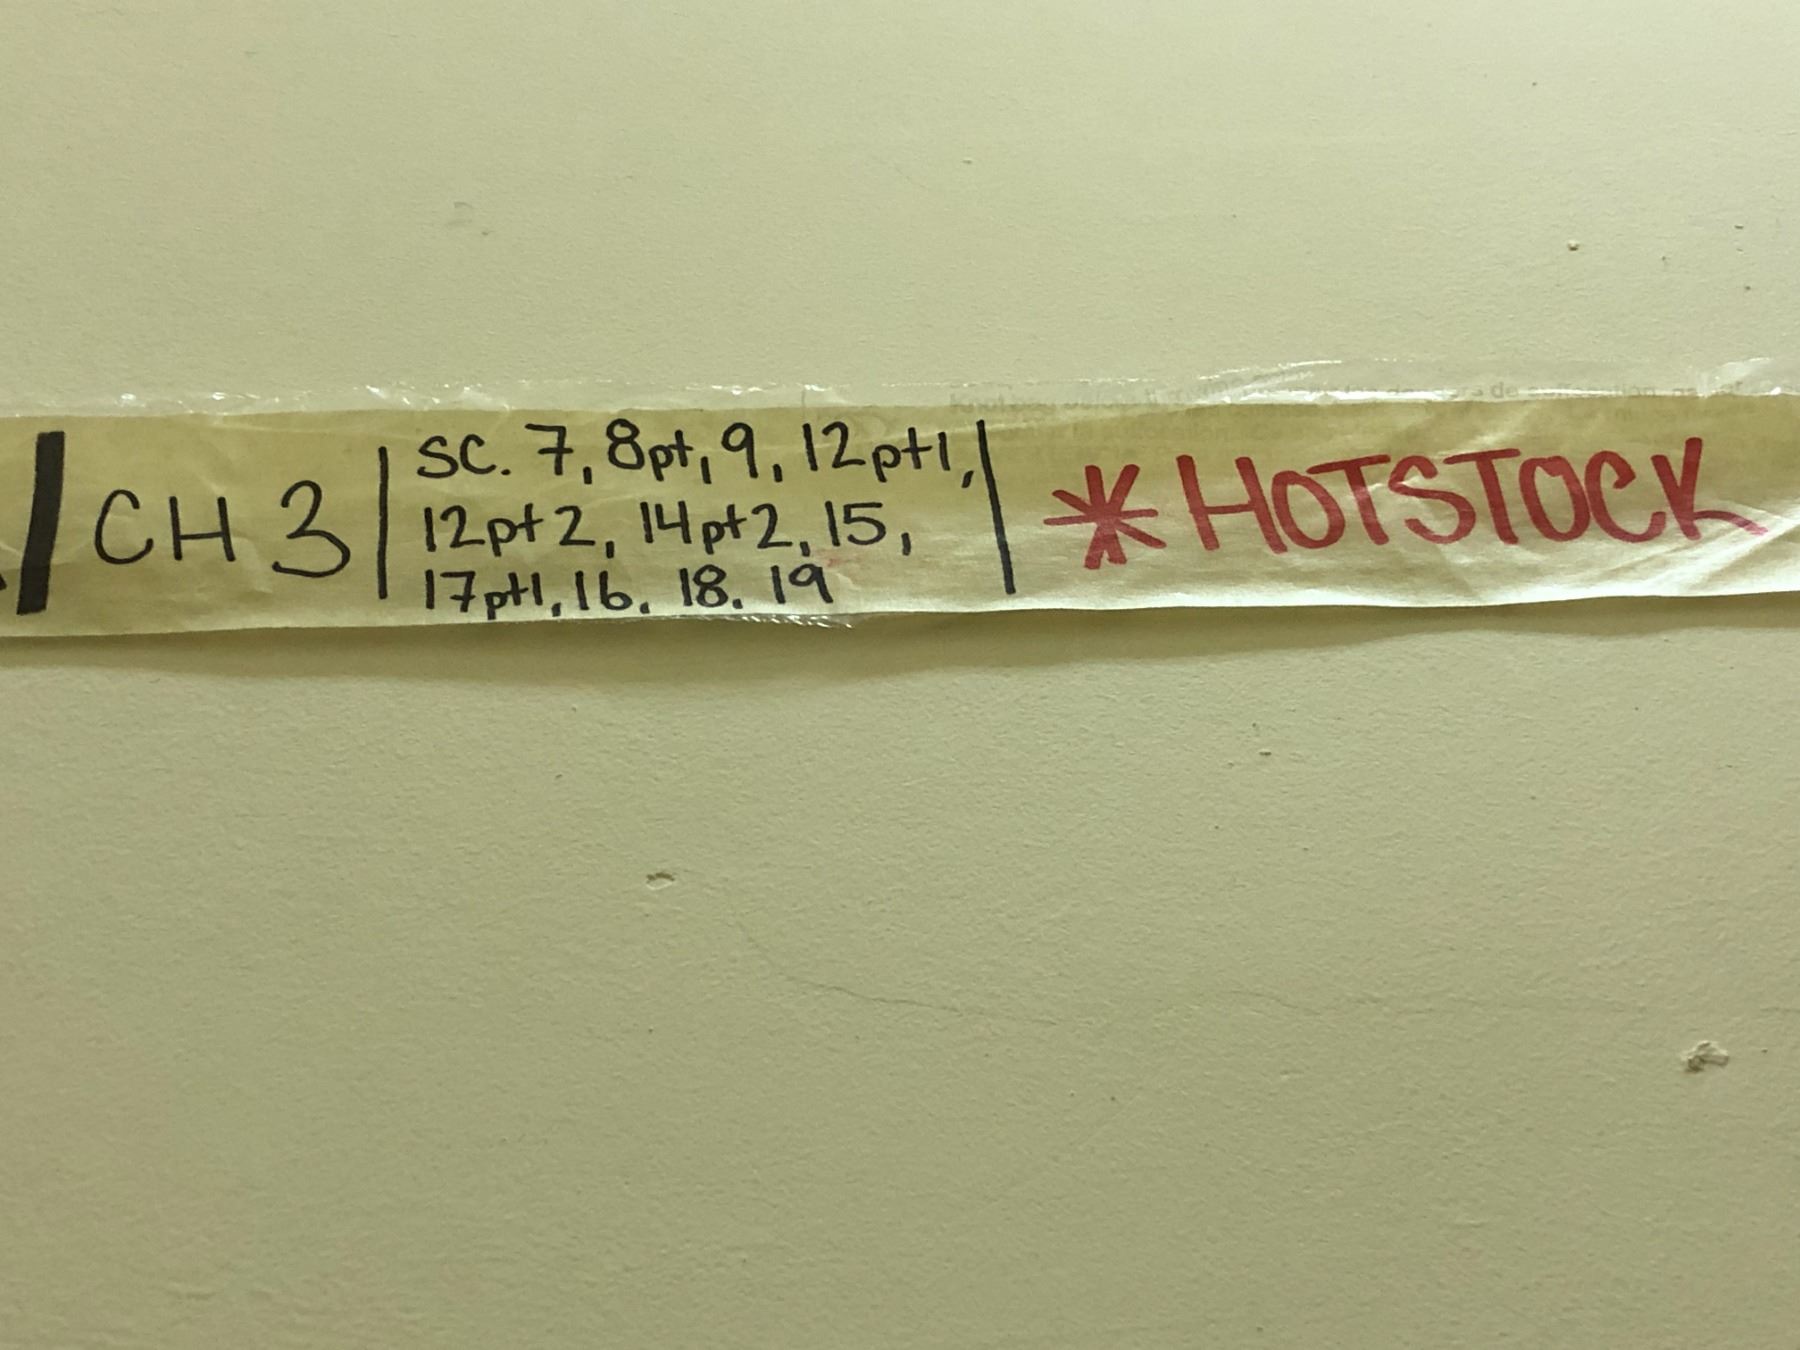 CH 3
sc. 7, 8pt, 9, 12pt1,
12pt2, 14pt2, 15,
17pt1, 16. 18. 19
* HOTSTOCK